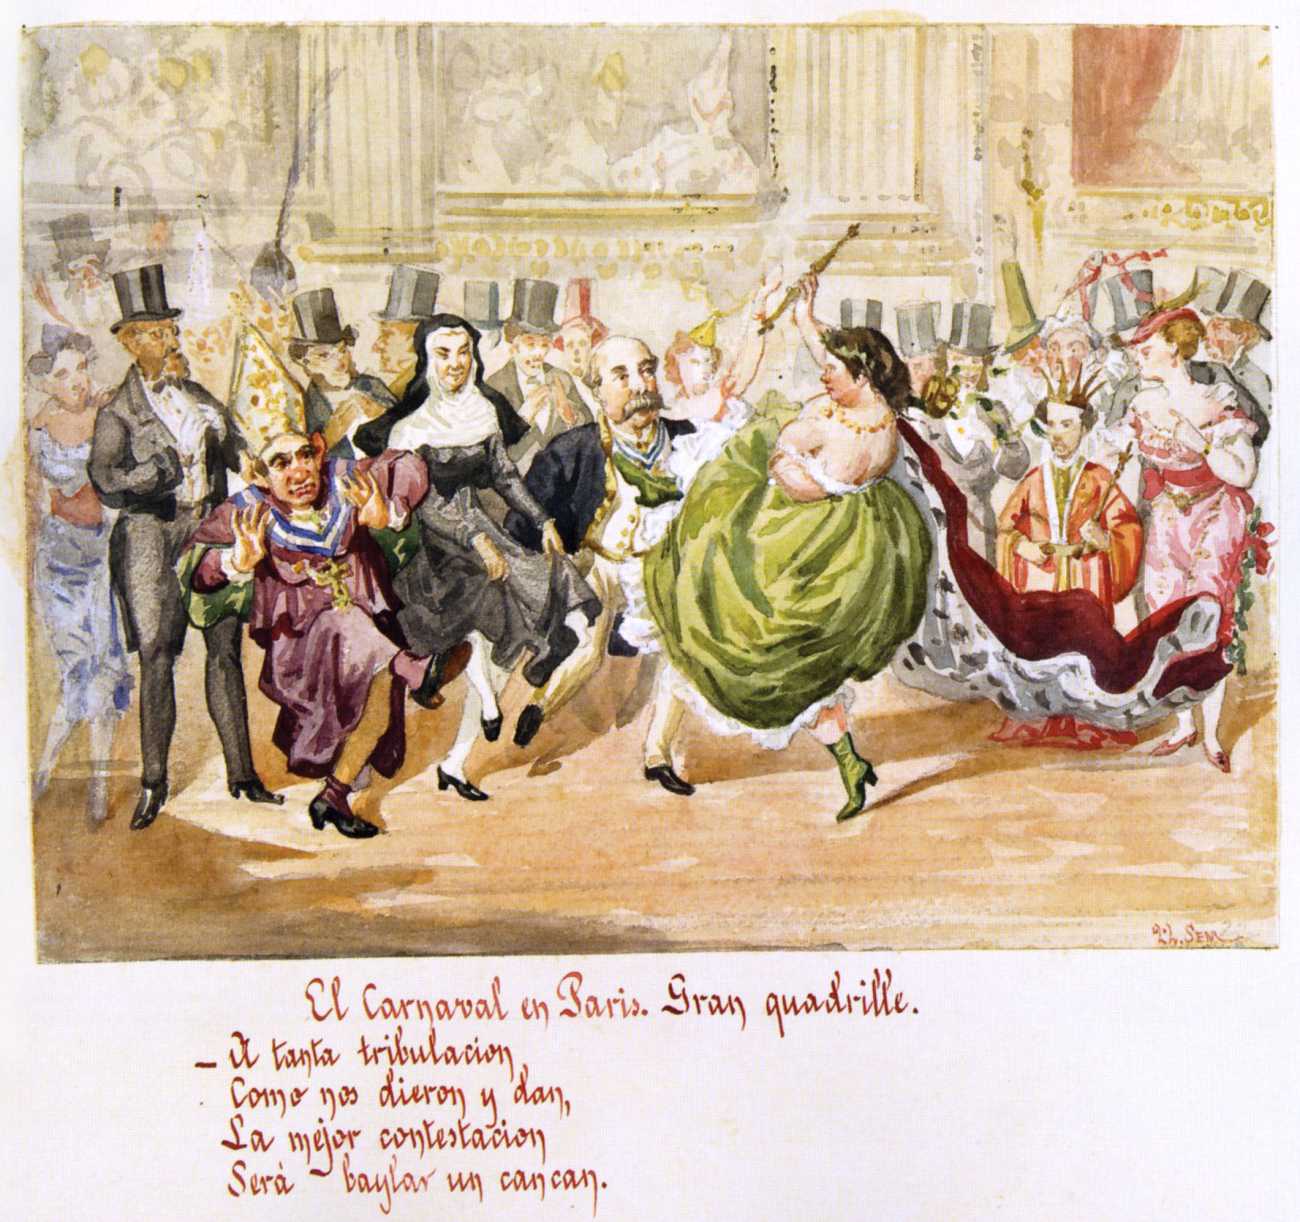 SEM
El Carnaval en Paris. Gran quadrille.
– A tanta tribulacion,
Como nos dieron y dan,
La mejor contestacion
Será baylar un cancan.